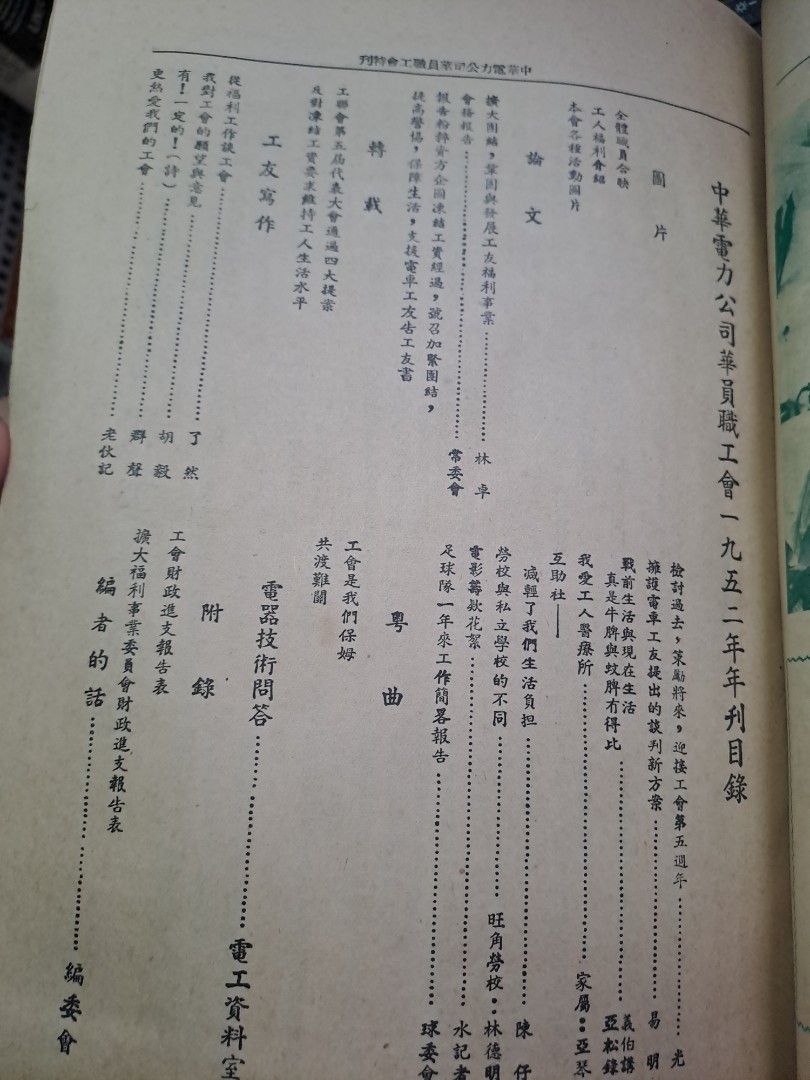 中華電力公司華員職工會特刊
中華電力公司華員職工會一九五二年年刊目錄
圖片
全體職員合映
工人福利介紹
本會各種活動圖片
論文
擴大團結，鞏固與發展工友福利事業……林卓
會務報告……常委會
報告粉粹資方企圖凍結工資經過，號召加緊團結，
提高警惕，保障生活，支援電車工友告工友書
轉載
工聯會第五屆代表大會通過四大提案
反對凍結工資要求維持工人生活水平
工友寫作
從福利工作談工會……了然
我對工會的願望與意見……胡毅
有！一定的！（詩）……群聲
更熱愛我們的工會……老伙記
檢討過去，策勵將來，迎接工會第五週年……光
擁護電車工友提出的談判新方案……易明
戰前生活與現在生活
真是牛脾與蚊脾冇得比……義伯講 亞松錄
我愛工人醫療所……家屬：亞琴
互助社——
減輕了我們生活負担……陳仔
勞校與私立學校的不同……旺角勞校：林德明
電影籌欵花絮……水記者
足球隊一年來工作簡畧報告……球委會
粵曲
工會是我們保姆
共渡難關
電器技術問答……電工資料室
附錄
工會財政進支報告表
擴大福利事業委員會財政進支報告表
編者的話……編委會